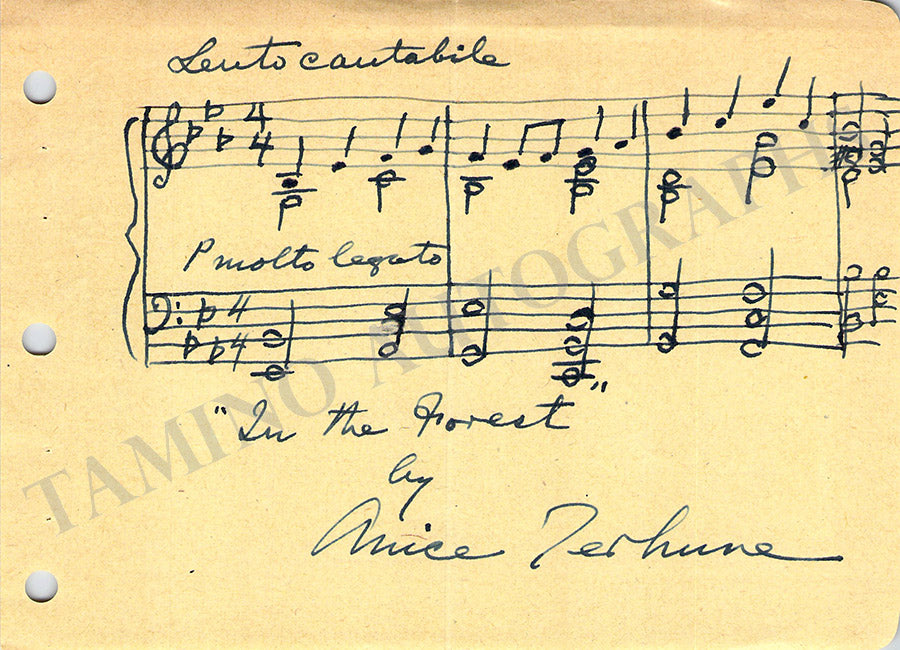 Lento cantabile
4
4
P molto legato
4
4
"In the Forest"
by
Anice Terhune
TAMINO AUTOGRAPHS